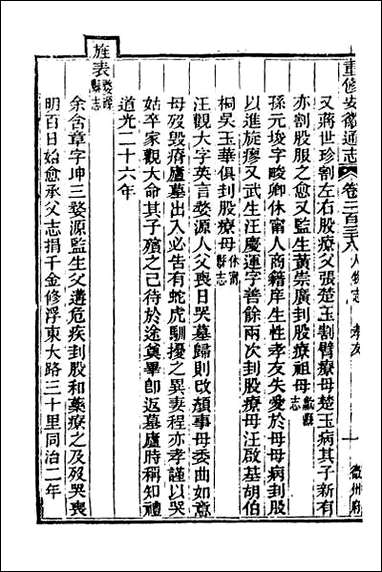 重修安徽通志 卷二百三六 人物志 孝友 十 徽州府
又蔣世珍割左右股療父張楚玉割臂療母楚玉病其子新有
亦割股服之愈又監生黃崇廣刲股療祖母歙縣志
孫元埈字畯卿休甯人商籍庠生性孝友失愛於母母病刲股
以進旋瘳又武生汪慶運字善餘兩次刲股療母汪啟基胡伯
桐吳玉華俱刲股療母休甯縣志
汪觀大字英言婺源人父喪日哭墓歸則改頮事母委曲如意
母歿毀瘠廬墓出入必告有蛇虎馴擾之異妻程亦孝謹以哭
姑卒家觀大命其子殯之己待於途奠畢卽返墓廬時稱知禮
道光二十六年
旌表婺源縣志
余含章字坤三婺源監生父遘危疾刲股和藥療之及歿哭喪
明百日始愈承父志捐千金修浮東大路三十里同治二年